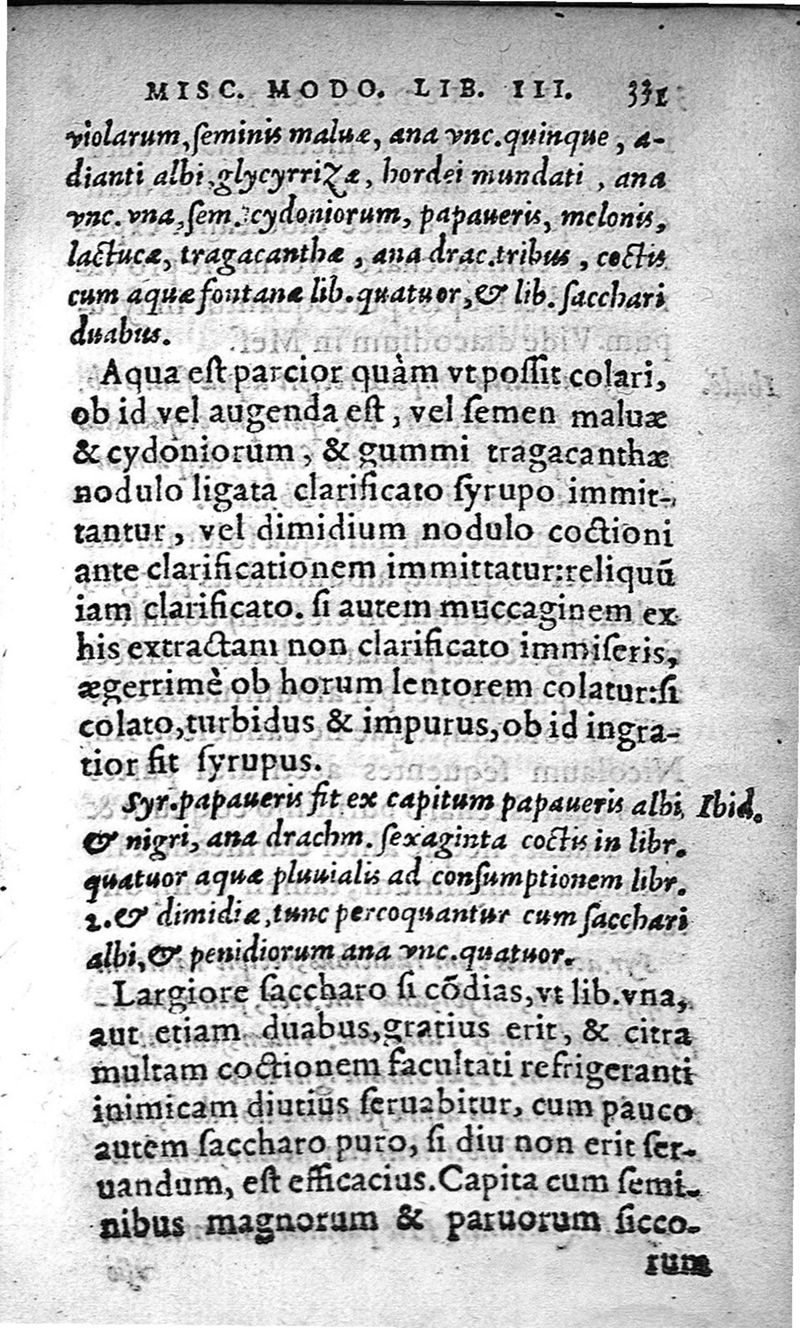 MISC. MODO. LIB. III. 331
violarum, ſeminis maluæ, ana vnc. quinque, a-
dianti albi, glycyrrizæ, hordei mundati, ana
vnc. vna, ſem. cydoniorum, papaueris, melonis,
lactucæ, tragacanthæ, ana drac. tribus, coctis
cum aquæ fontanæ lib. quatuor, & lib. ſacchari
duabus.
Aqua eſt parcior quàm vt poſſit colari,
ob id vel augenda eſt, vel ſemen maluæ
& cydoniorum, & gummi tragacanthæ
nodulo ligata clarificato ſyrupo immit-
tantur, vel dimidium nodulo coctioni
ante clarificationem immittatur: reliquũ
iam clarificato. ſi autem muccaginem ex
his extractam non clarificato immiſeris,
ægerrimè ob horum lentorem colatur: ſi
colato, turbidus & impurus, ob id ingra-
tior fit ſyrupus.
Syr. papaueris fit ex capitum papaueris albi, Ibid.
& nigri, ana drachm. ſexaginta coctis in libr.
quatuor aquæ pluuialis ad conſumptionem libr.
2. & dimidiæ, tunc percoquantur cum ſacchari
albi, & penidiorum ana vnc. quatuor.
Largiore ſaccharo ſi cõdias, vt lib. vna,
aut etiam duabus, gratius erit, & citra
multam coctionem facultati refrigeranti
inimicam diutius ſeruabitur, cum pauco
autem ſaccharo puro, ſi diu non erit ſer-
uandum, eſt efficacius. Capita cum ſemi-
nibus magnorum & paruorum ſicco-
rum